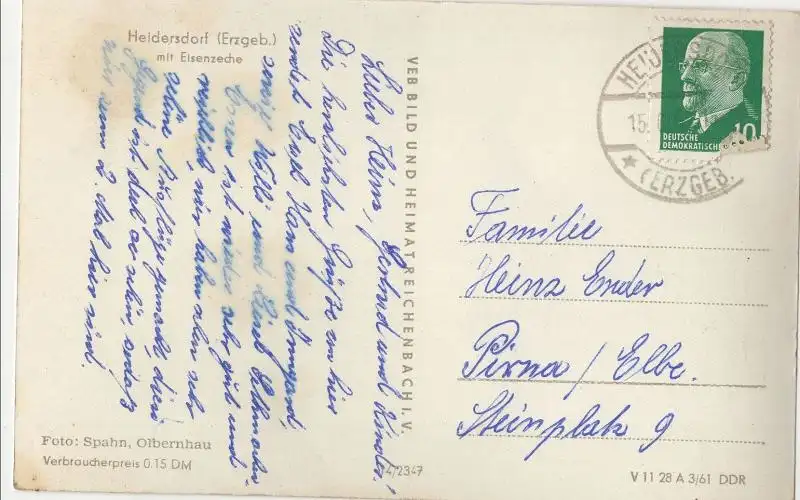 Heidersdorf (Erzgeb.)
mit Eisenzeche
Lieber Heinz, Gertrud und Kinder!
Die herzlichsten Grüße von hier
sendet Euch Hans und Irmgard,
sowie Willi und
ist wieder sehr gut und
reichlich, wir haben schon sehr
schöne Ausflüge gemacht, diese
Gegend ist doch so schön, sodaß
wir zum 2. Mal hier sind.
Foto: Spahn, Olbernhau
Verbraucherpreis 0.15 DM
VEB BILD UND HEIMAT REICHENBACH I. V.
4/2347
HEIDERSDO
15.
(ERZGEB.
DEUTSCHE
DEMOKRATISCHE
10
Familie
Heinz Ender
Pirna / Elbe.
Steinplatz 9
V 11 28 A 3/61 DDR